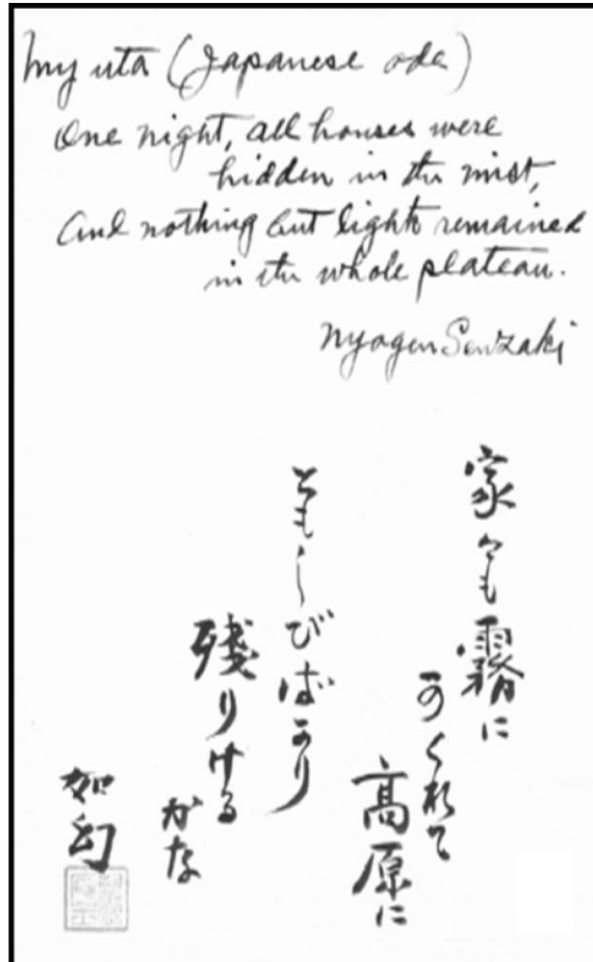 My uta (Japanese ode)
One night, all houses were
hidden in the mist,
And nothing but lights remained
in the whole plateau.
Nyogen Senzaki
家々も霧に
かくれて
高原に
ともしびばかり
残りける
かな
如幻